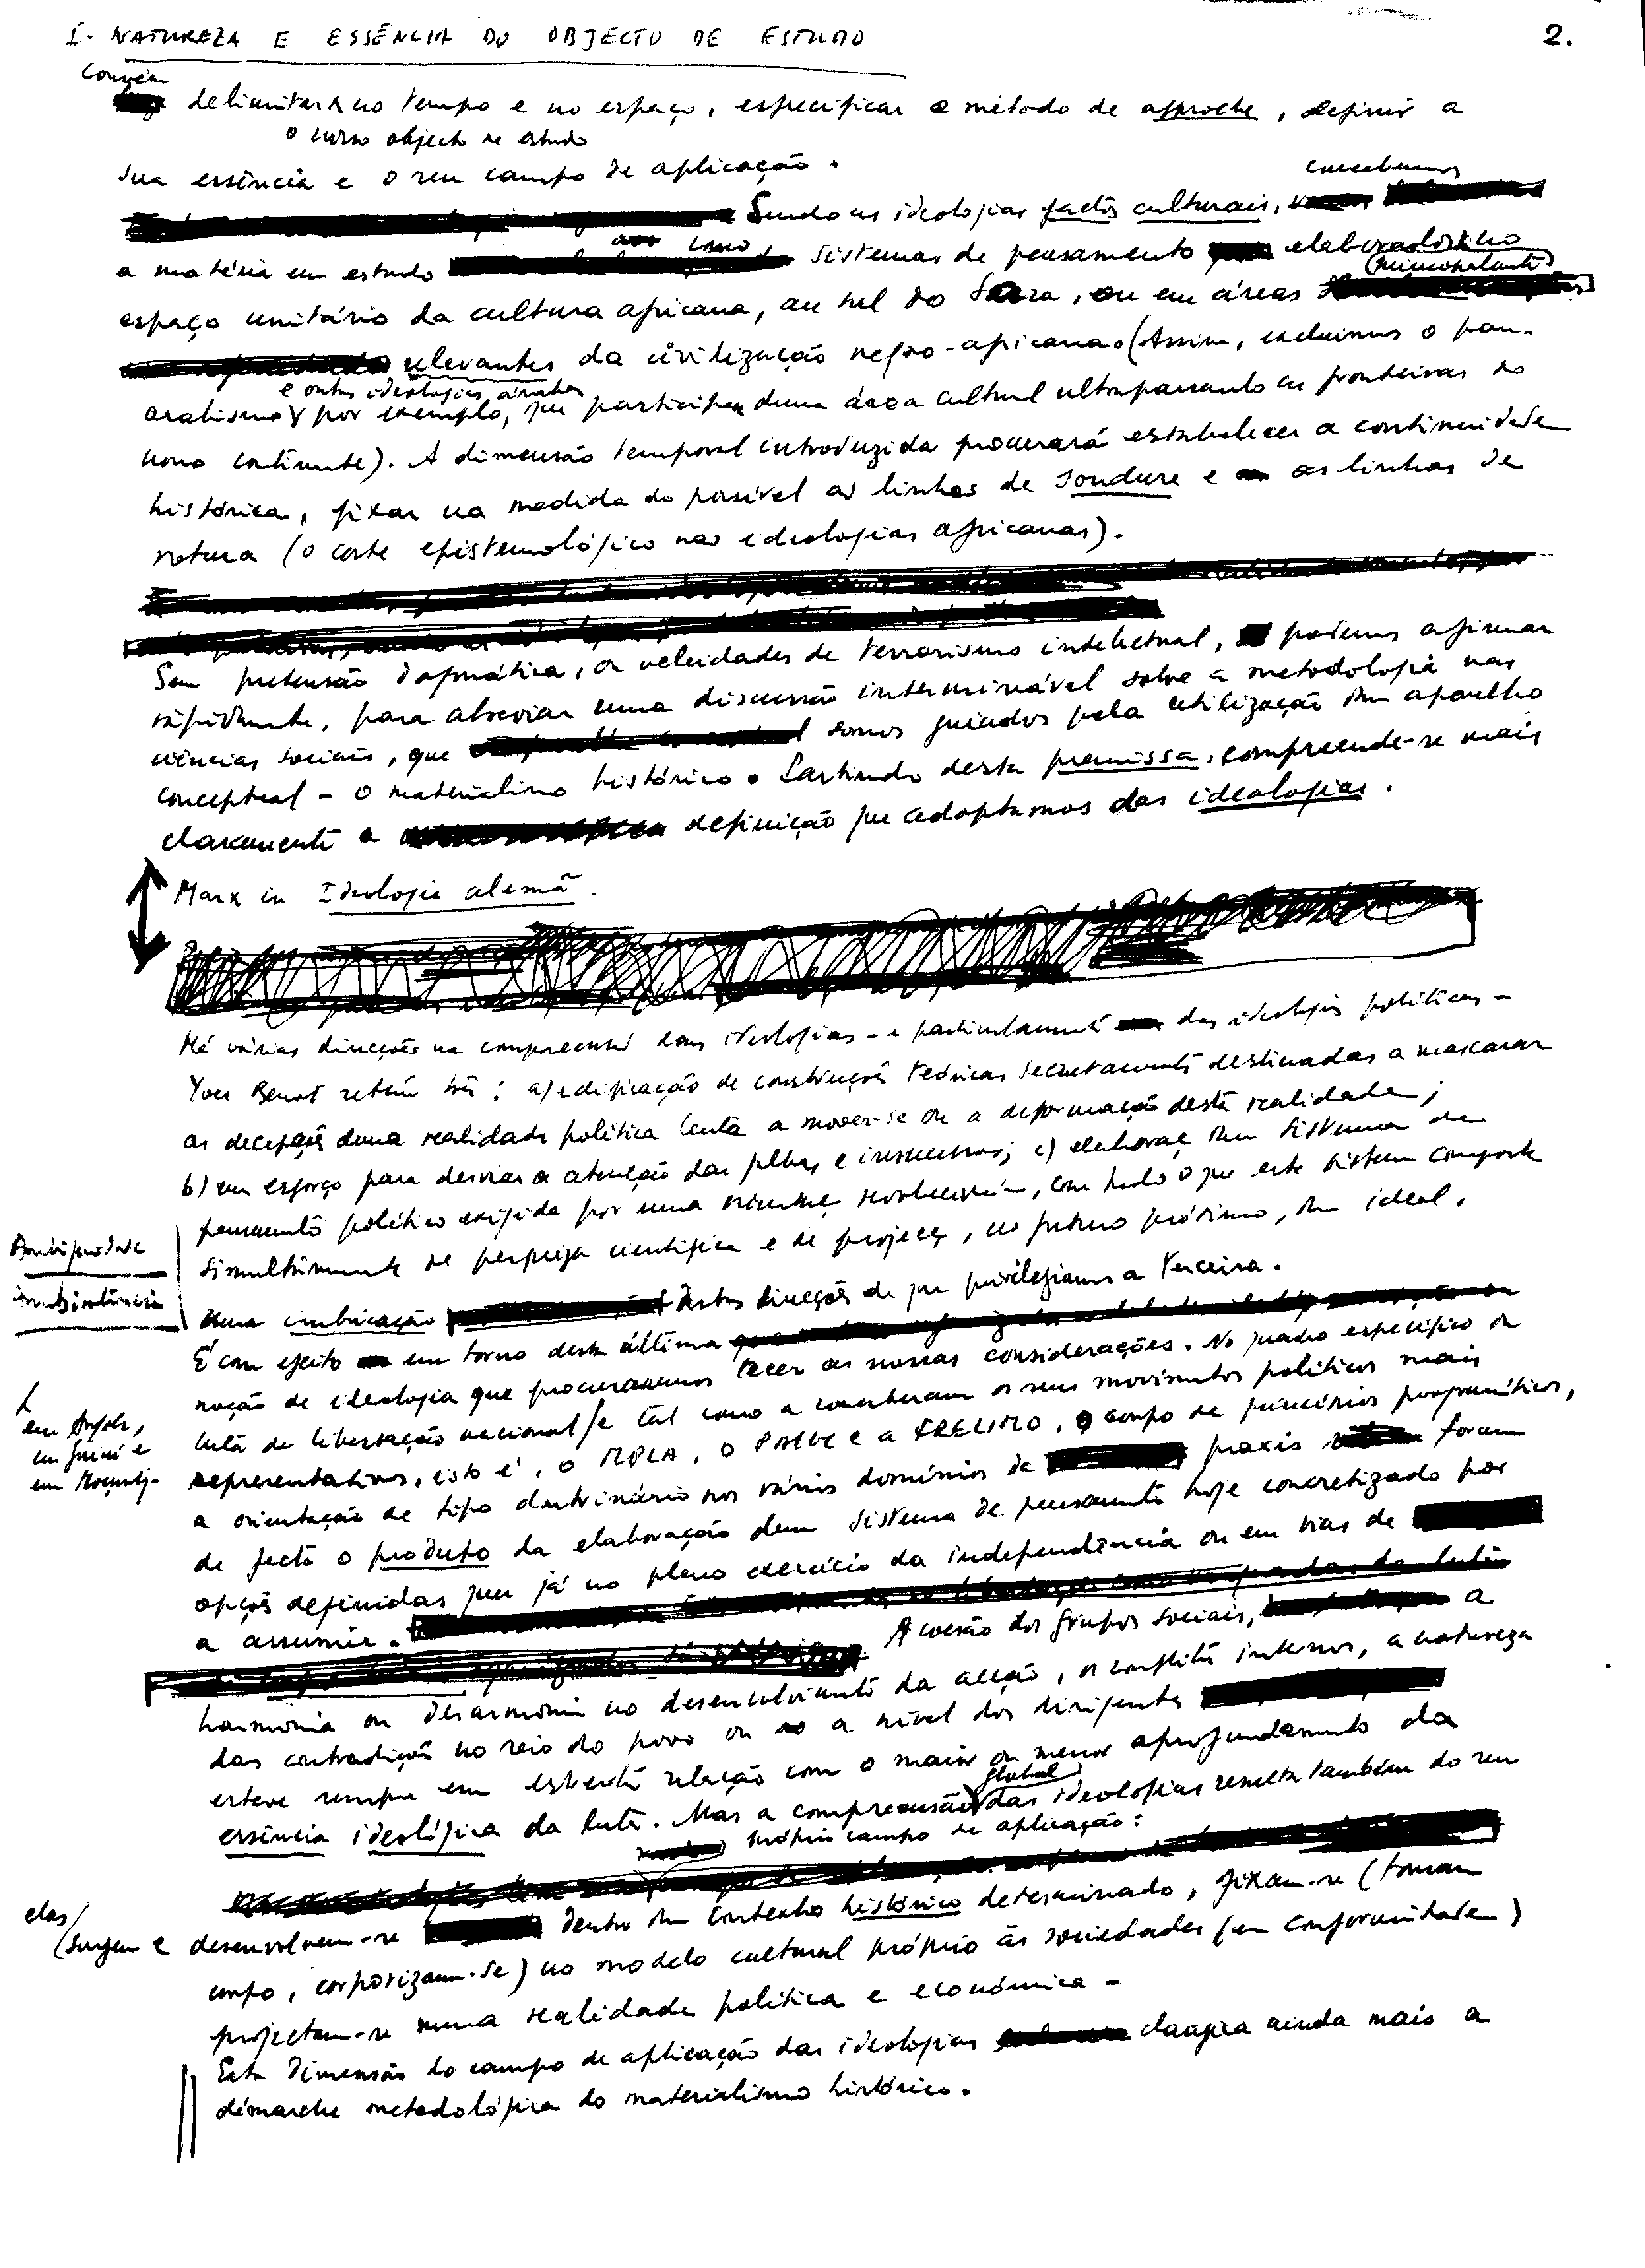 I - NATUREZA E ESSÊNCIA DO OBJECTO DE ESTUDO
2.
Convém
delimitar no tempo e no espaço, especificar o método de approche, definir a
o nosso objecto de estudo
sua essência e o seu campo de aplicação.
concebemos
Sendo as ideologias factos culturais,
como
a matéria em estudo sistemas de pensamento elaborados no
espaço unitário da cultura africana, ao sul do Sara, ou em áreas
relevantes da civilização negro-africana. (Assim, excluimos o pan-
e outras ideologias árabes
arabismo por exemplo, que participam duma área cultural ultrapassando as fronteiras do
nosso continente). A dimensão temporal introduzida procurará estabelecer a continuidade
histórica, fixar na medida do possível as linhas de soudure e as linhas de
rotura (o corte epistemológico nas ideologias africanas).
Sem pretensão dogmática, ou veleidades de terrorismo intelectual, podemos afirmar
rapidamente, para abreviar uma discussão interminável sobre a metodologia nas
ciências sociais, que somos guiados pela utilização dum aparelho
conceptual - o materialismo histórico. Partindo desta premissa, compreende-se mais
claramente a definição que adoptamos das ideologias.
Marx in Ideologia alemã.
Há várias direcções na compreensão das ideologias - e particularmente das ideologias políticas -
Yves Benot retém três: a) edificação de construções teóricas secretamente destinadas a mascarar
as decepções duma realidade política lenta a mover-se ou a deformação desta realidade;
b) um esforço para desviar a atenção das falhas e insucessos; c) elaboração dum sistema de
pensamento político exigida por uma orientação revolucionária, com tudo o que este sistema comporta
simultâneamente de pesquisa científica e de projecção, no futuro próximo, dum ideal.
Ambiguidade
Numa imbricação destas direcções de que privilegiamos a terceira.
É com efeito em torno desta última
noção de ideologia que procuraremos tecer as nossas considerações. No quadro específico da
luta de libertação nacional/e tal como a conceberam os seus movimentos políticos mais
em Angola,
na Guiné e
em Moçambi-
representativos, isto é, o MPLA, o PAIGC e a FRELIMO, o corpo de princípios programáticos,
a orientação de tipo doutrinário nos vários domínios da praxis foram
de facto o produto da elaboração dum sistema de pensamento hoje concretizado por
opções definidas quer já no pleno exercício da independência ou em vias de
a assumir.
A coesão dos grupos sociais, a
harmonia ou desarmonia no desenvolvimento da acção, os conflitos internos, a natureza
das contradições no seio do povo ou a nível dos dirigentes
esteve sempre em estreita relação com o maior ou menor aprofundamento da
global
essência ideológica da luta. Mas a compreensão das ideologias resulta também do seu
próprio campo de aplicação:
elas/
(surgem e desenvolvem-se dentro dum contexto histórico determinado, fixam-se (tomam
corpo, corporizam-se) no modelo cultural próprio às sociedades (em conformidade)
projectam-se numa realidade política e económica -
Esta dimensão do campo de aplicação das ideologias clarifica ainda mais a
démarche metodológica do materialismo histórico.